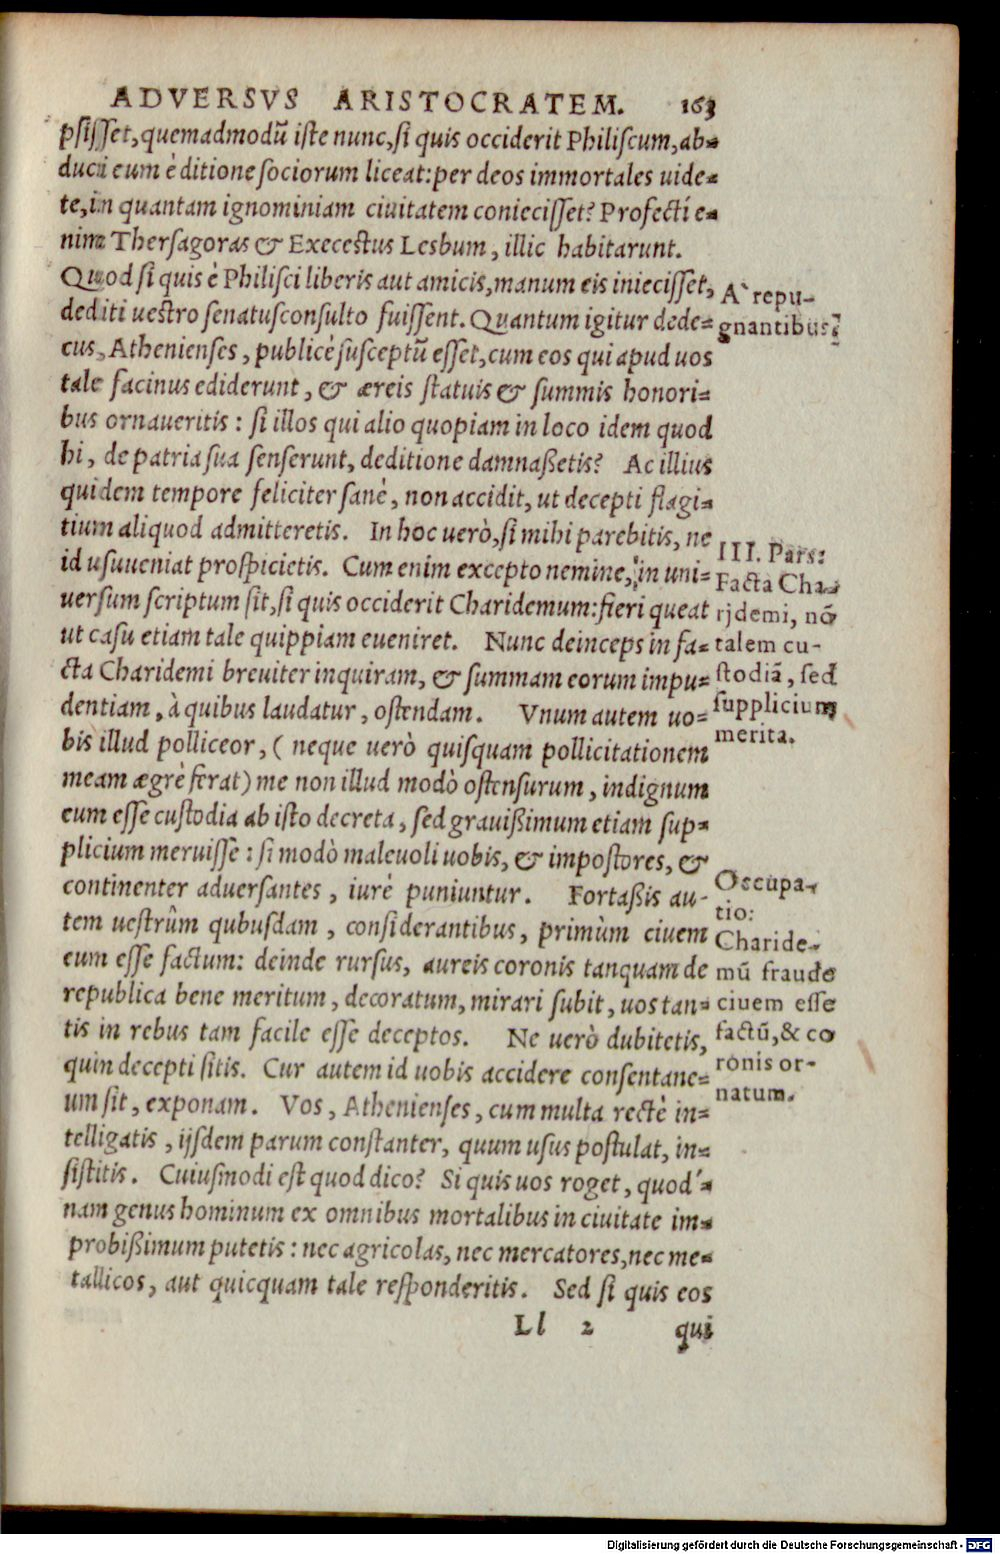 ADVERSVS ARISTOCRATEM. 163
psisset, quemadmodū iste nunc, si quis occiderit Philiscum, ab=
duci eum è ditione sociorum liceat: per deos immortales uide=
te, in quantam ignominiam ciuitatem coniecisset? Profecti e=
nim Thersagoras & Execestus Lesbum, illic habitarunt.
Quod si quis è Philisci liberis aut amicis, manum eis iniecisset,
dediti uestro senatusconsulto fuissent. Quantum igitur dede=
cus, Athenienses, publicè susceptū esset, cum eos qui apud uos
tale facinus ediderunt, & æreis statuis & summis honori=
bus ornaueritis: si illos qui alio quopiam in loco idem quod
hi, de patria sua senserunt, deditione damnaßetis? Ac illius
quidem tempore feliciter sanè, non accidit, ut decepti flagi=
tium aliquod admitteretis. In hoc uerò, si mihi parebitis, ne
id usuueniat prospicietis. Cum enim excepto nemine, in uni=
uersum scriptum sit, si quis occiderit Charidemum: fieri queat
ut casu etiam tale quippiam eueniret. Nunc deinceps in fa=
cta Charidemi breuiter inquiram, & summam eorum impu=
dentiam, à quibus laudatur, ostendam. Vnum autem uo=
bis illud polliceor, (neque uerò quisquam pollicitationem
meam ægrè ferat) me non illud modò ostensurum, indignum
eum esse custodia ab isto decreta, sed grauißimum etiam sup=
plicium meruisse: si modò maleuoli uobis, & impostores, &
continenter aduersantes, iurè puniuntur. Fortaßis au-
tem uestrûm qubusdam, considerantibus, primùm ciuem
eum esse factum: deinde rursus, aureis coronis tanquam de
republica bene meritum, decoratum, mirari subit, uos tan=
tis in rebus tam facile esse deceptos. Ne uerò dubitetis,
quin decepti sitis. Cur autem id uobis accidere consentane=
um sit, exponam. Vos, Athenienses, cum multa rectè in=
telligatis, ijsdem parum constanter, quum usus postulat, in=
sistitis. Cuiusmodi est quod dico? Si quis uos roget, quod=
nam genus hominum ex omnibus mortalibus in ciuitate im=
probißimum putetis: nec agricolas, nec mercatores, nec me=
tallicos, aut quicquam tale responderitis. Sed si quis eos
Ll 2 qui
A` repu-
gnantibus.
III. Pars:
Facta Cha-
rjdemi, nō
talem cu-
stodiā, sed
supplicium
merita.
Occupa-
tio:
Charide-
mū fraude
ciuem esse
factū, & co
ronis or-
natum.
Digitalisierung gefördert durch die Deutsche Forschungsgemeinschaft - DFG